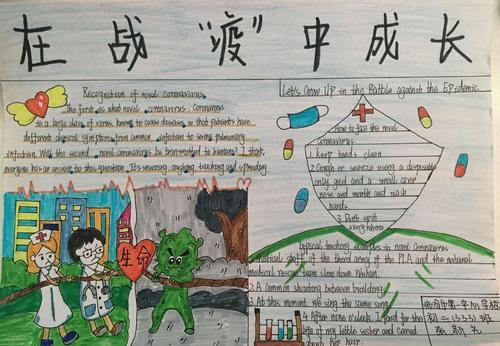 在战“疫”中成长
Recognition of novel coronavirus
The first is what novel coronavirus. Coronavirus
is a large class of virus known to cause diseases, so that patients have
different clinical symptoms from common infection to severe pulmonary
infection. Will the second novel coronavirus be transmitted to humans? I think
everyone has an answer to this question. It's amazing, coughing, touching and spreading
生命
Let's Grow Up in the Battle against the Epidemic
How to face the novel
coronavirus
1. Keep hands clean
2. Cough or sneeze using a disposable
nose and mouth and wash
hands
3. Don't spit
everywhere
typical touching examples in novel coronavirus
Medical staff of the third army of the PLA and the national
medical rescue team
2. A Common shouting between buildings
3. At this moment we sing the same song
4. After nine o'clock, I and for the
life of my little sister and cared
from her hair.
初二(333)班